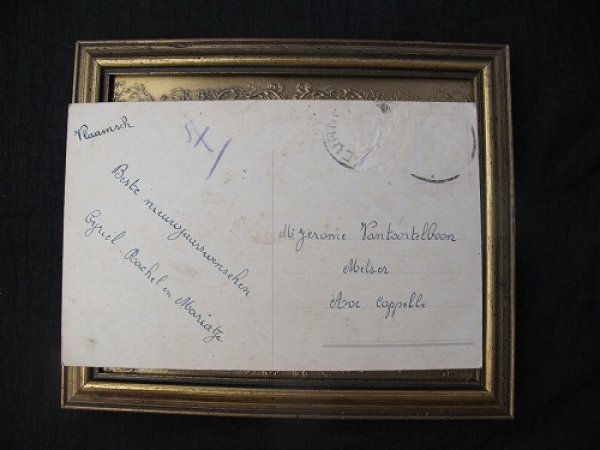 Vlaamsch
5x/
Beste nieuwjaarswenschen
Cyriel - Rachel en Mariatje
Mr Jerome Vantoortelboon
Metser
Ave Cappelle
VEURNE